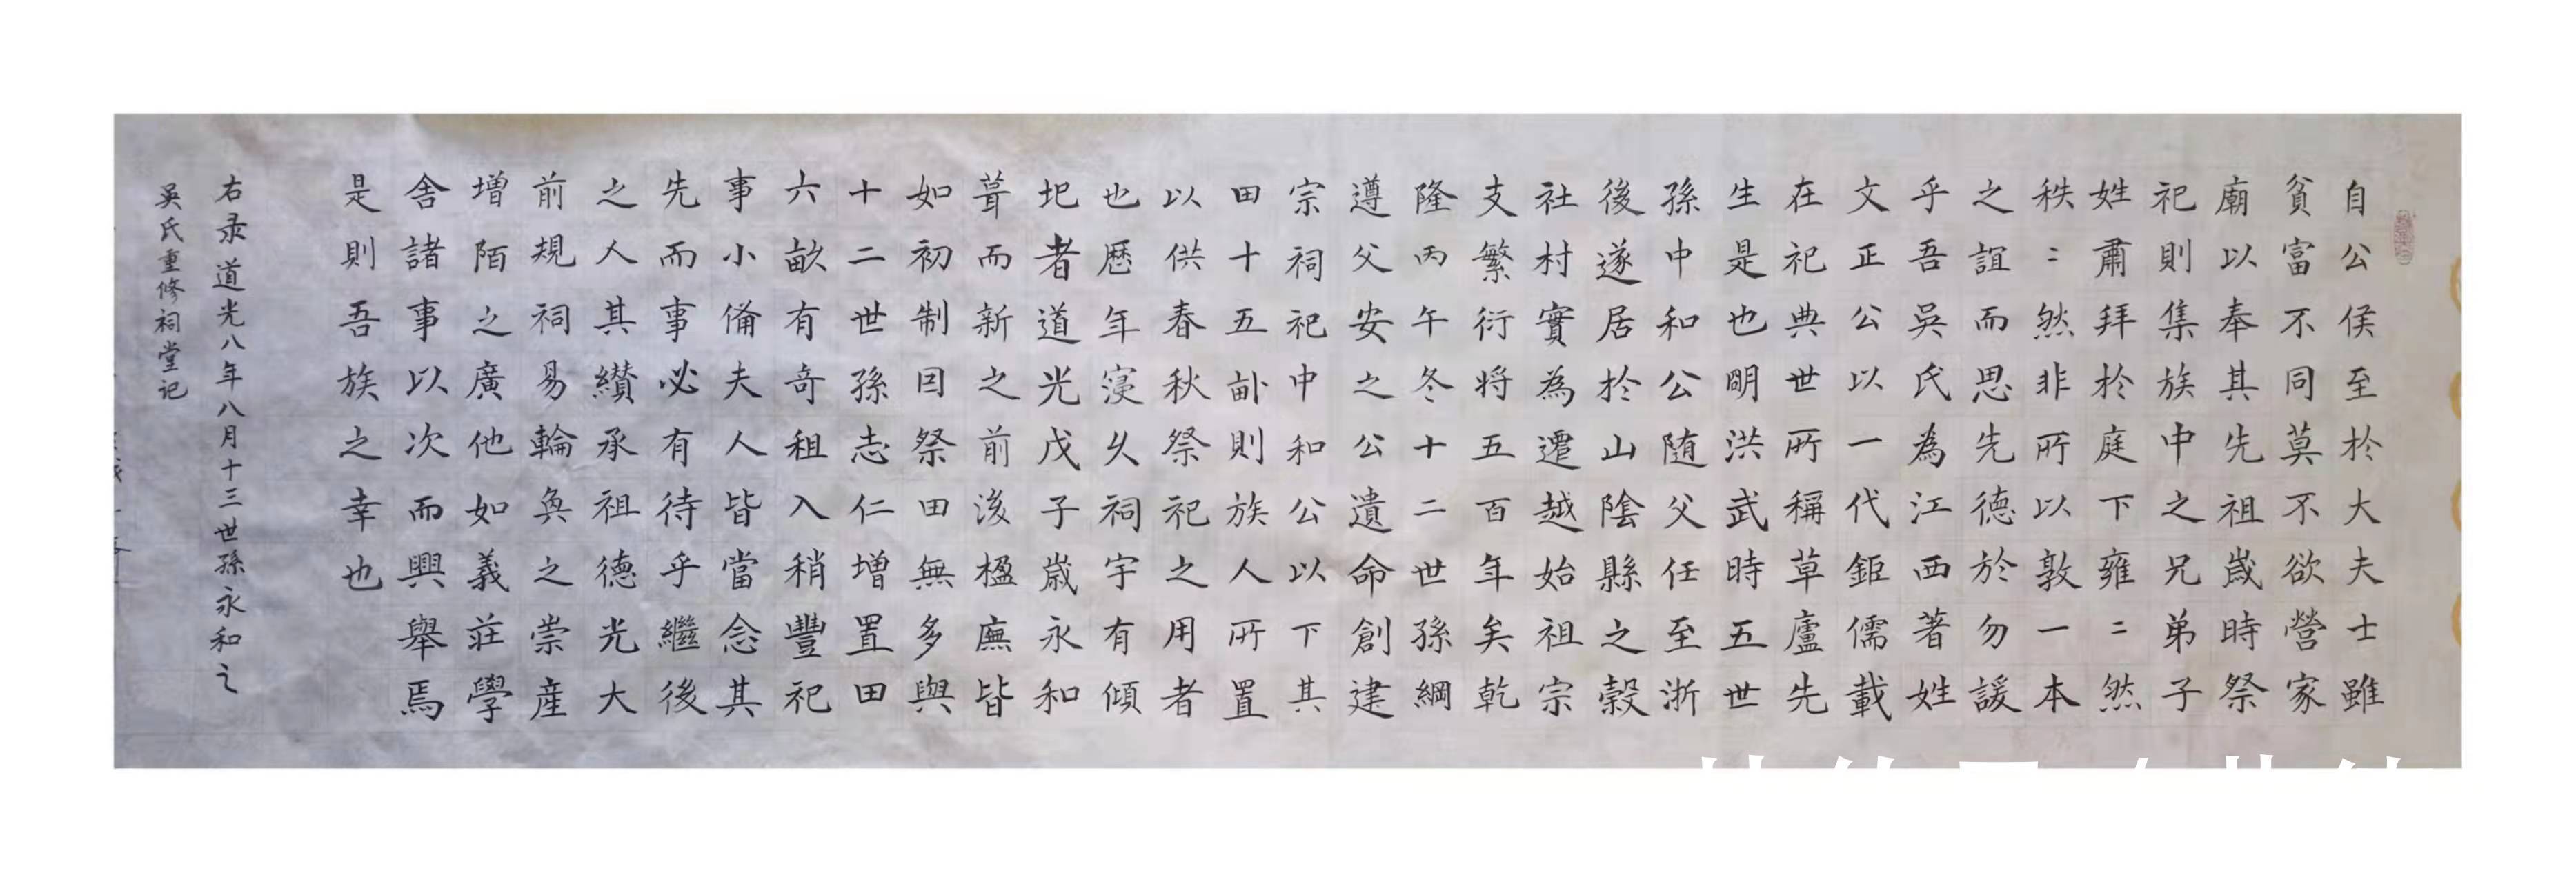 自公侯至於大夫士雖
貧富不同莫不欲營家
廟以奉其先祖歲時祭
祀則集族中之兄弟子
姓肅拜於庭下雍〻然
秩〻然非所以敦一本
之誼而思先德於勿諼
乎吾吳氏為江西著姓
文正公以一代鉅儒載
在祀典世所稱草廬先
生是也明洪武時五世
孫中和公随父任至浙
後遂居於山陰縣之穀
社村實為遷越始祖宗
支繁衍将五百年矣乾
隆丙午冬十二世孫綱
遵父安之公遺命創建
宗祠祀中和公以下其
田十五畝則族人所置
以供春秋祭祀之用者
也歷年寖久祠宇有傾
圯者道光戊子歲永和
葺而新之前後楹廡皆
如初制囙祭田無多與
十二世孫志仁增置田
六畝有奇租入稍豐祀
事小備夫人皆當念其
先而事必有待乎繼後
之人其纘承祖德光大
前規祠易輪奐之崇産
增陌之廣他如義莊學
舍諸事以次而興舉焉
是則吾族之幸也
右录道光八年八月十三世孫永和之
吳氏重修祠堂记